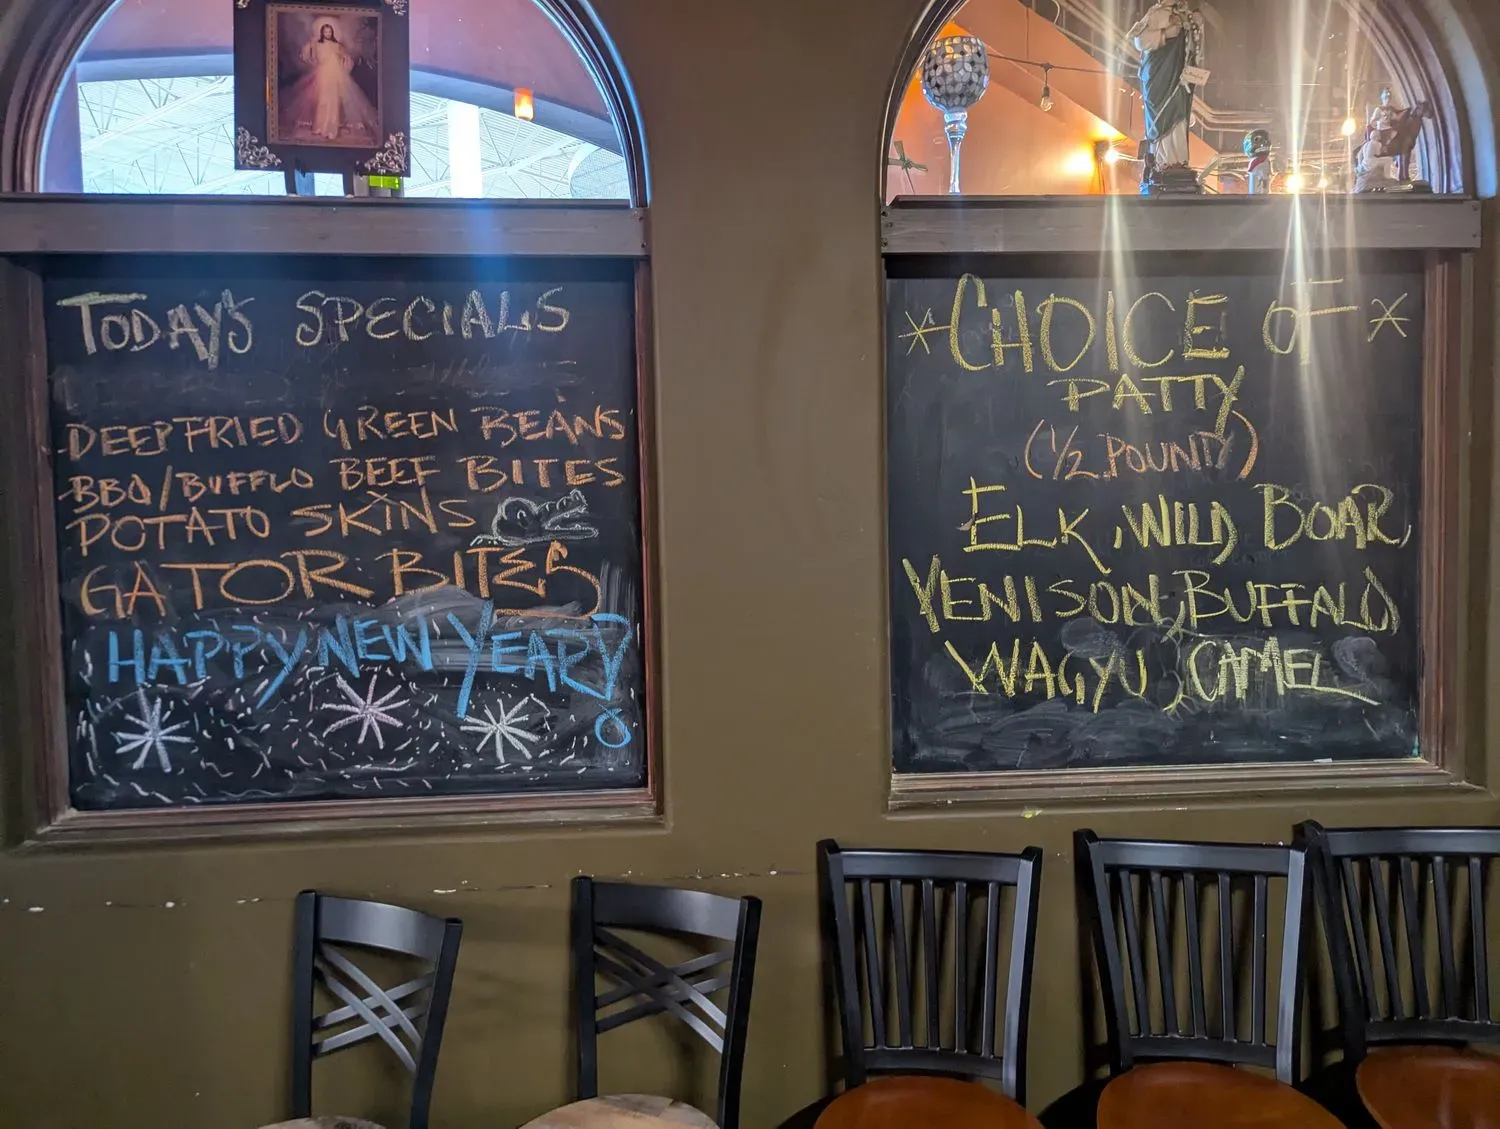 TODAY'S SPECIALS
DEEP FRIED GREEN BEANS
BBQ/BUFFLO BEEF BITES
POTATO SKINS
GATOR BITES
HAPPY NEW YEAR!
*CHOICE OF*
PATTY
(1/2 POUND)
ELK, WILD BOAR,
VENISON, BUFFALO,
WAGYU, CAMEL